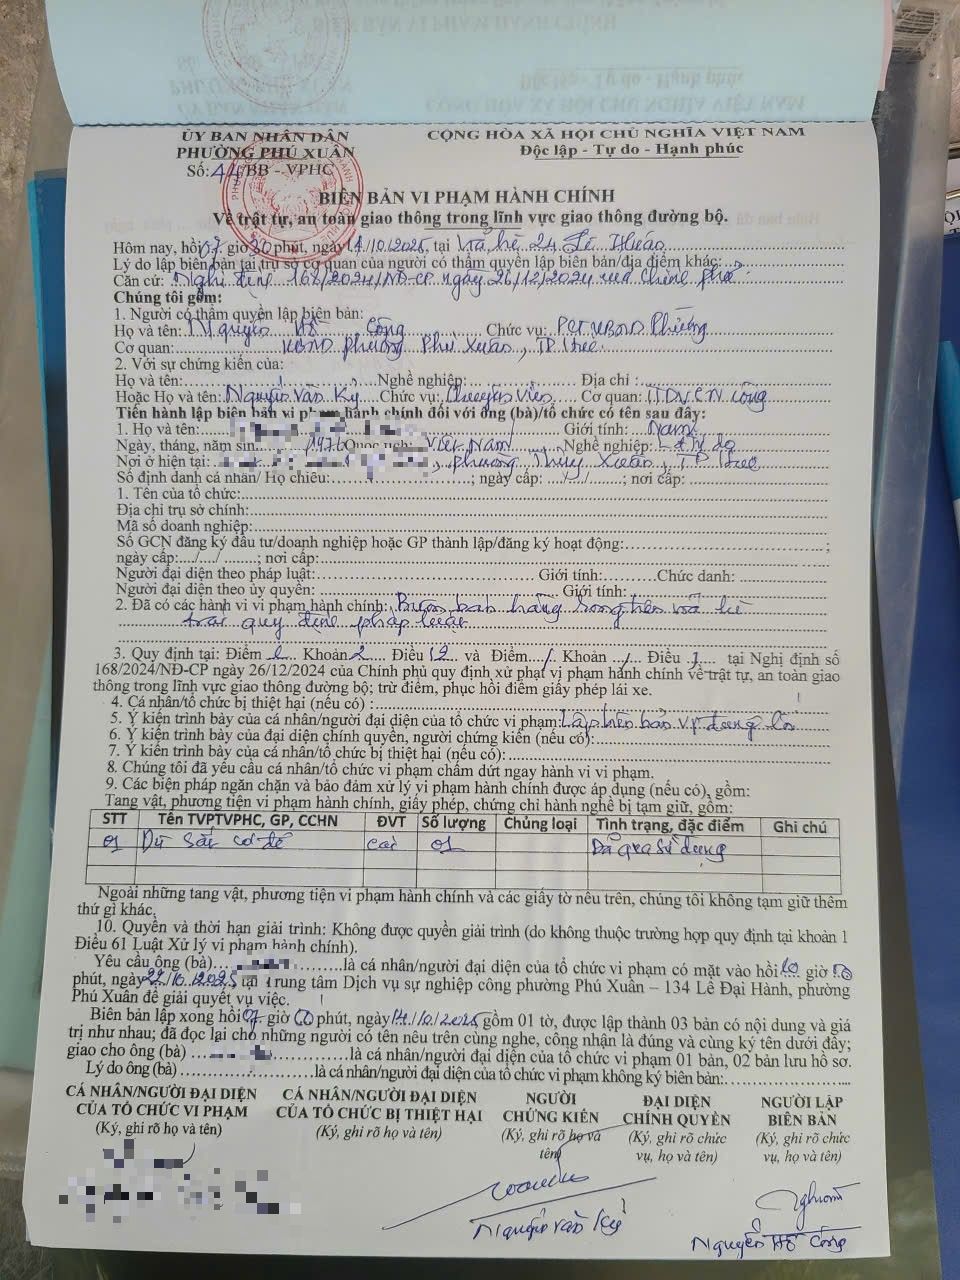 ỦY BAN NHÂN DÂN
PHƯỜNG PHÚ XUÂN
Số: 44/BB - VPHC
CỘNG HÒA XÃ HỘI CHỦ NGHĨA VIỆT NAM
Độc lập - Tự do - Hạnh phúc
BIÊN BẢN VI PHẠM HÀNH CHÍNH
Về trật tự, an toàn giao thông trong lĩnh vực giao thông đường bộ.
Hôm nay, hồi 07 giờ 50 phút, ngày 14/10/2025, tại Vỉa hè 24 Lê Huân
Lý do lập biên bản tại trụ sở cơ quan của người có thẩm quyền lập biên bản/địa điểm khác:
Căn cứ: Nghị định 168/2024/NĐ-CP ngày 26/12/2024 của Chính phủ
Chúng tôi gồm:
1. Người có thẩm quyền lập biên bản:
Họ và tên: Nguyễn Hồ Công Chức vụ: PCT UBND Phường
Cơ quan: UBND phường Phú Xuân, TP Huế
2. Với sự chứng kiến của:
Họ và tên: Nghề nghiệp: Địa chỉ :
Hoặc Họ và tên: Nguyễn Văn Kỷ Chức vụ: Chuyên viên Cơ quan: TTDVCTN công
Tiến hành lập biên bản vi phạm hành chính đối với ông (bà)/tổ chức có tên sau đây:
1. Họ và tên: Giới tính: Nam
Ngày, tháng, năm sin 1976 Quốc tịch: Việt Nam Nghề nghiệp: LĐ tự do
Nơi ở hiện tại: phường Thủy Xuân, TP Huế
Số định danh cá nhân/ Hộ chiếu: ; ngày cấp: / / ; nơi cấp:
1. Tên của tổ chức:
Địa chỉ trụ sở chính:
Mã số doanh nghiệp:
Số GCN đăng ký đầu tư/doanh nghiệp hoặc GP thành lập/đăng ký hoạt động: ;
ngày cấp: / / ; nơi cấp:
Người đại diện theo pháp luật: Giới tính: Chức danh:
Người đại diện theo ủy quyền: Giới tính:
2. Đã có các hành vi vi phạm hành chính: Buôn bán hàng rong trên vỉa hè
trái quy định pháp luật
3. Quy định tại: Điểm Khoản 2 Điều 12 và Điểm / Khoản / Điều / tại Nghị định số
168/2024/NĐ-CP ngày 26/12/2024 của Chính phủ quy định xử phạt vi phạm hành chính về trật tự, an toàn giao
thông trong lĩnh vực giao thông đường bộ; trừ điểm, phục hồi điểm giấy phép lái xe.
4. Cá nhân/tổ chức bị thiệt hại (nếu có) :
5. Ý kiến trình bày của cá nhân/người đại diện của tổ chức vi phạm: Lập biên bản VP đúng lỗi
6. Ý kiến trình bày của đại diện chính quyền, người chứng kiến (nếu có):
7. Ý kiến trình bày của cá nhân/tổ chức bị thiệt hại (nếu có):
8. Chúng tôi đã yêu cầu cá nhân/tổ chức vi phạm chấm dứt ngay hành vi vi phạm.
9. Các biện pháp ngăn chặn và bảo đảm xử lý vi phạm hành chính được áp dụng (nếu có), gồm:
Tang vật, phương tiện vi phạm hành chính, giấy phép, chứng chỉ hành nghề bị tạm giữ, gồm:
STT Tên TVPTVPHC, GP, CCHN ĐVT Số lượng Chủng loại Tình trạng, đặc điểm Ghi chú
01 Dù sắt có đế cái 01 Đã qua sử dụng
Ngoài những tang vật, phương tiện vi phạm hành chính và các giấy tờ nêu trên, chúng tôi không tạm giữ thêm
thứ gì khác.
10. Quyền và thời hạn giải trình: Không được quyền giải trình (do không thuộc trường hợp quy định tại khoản 1
Điều 61 Luật Xử lý vi phạm hành chính).
Yêu cầu ông (bà) là cá nhân/người đại diện của tổ chức vi phạm có mặt vào hồi 10 giờ 00
phút, ngày 22/10/2025 tại Trung tâm Dịch vụ sự nghiệp công phường Phú Xuân – 134 Lê Đại Hành, phường
Phú Xuân để giải quyết vụ việc.
Biên bản lập xong hồi giờ 00 phút, ngày 14/10/2025 gồm 01 tờ, được lập thành 03 bản có nội dung và giá
trị như nhau; đã đọc lại cho những người có tên nêu trên cùng nghe, công nhận là đúng và cùng ký tên dưới đây;
giao cho ông (bà) là cá nhân/người đại diện của tổ chức vi phạm 01 bản, 02 bản lưu hồ sơ.
Lý do ông (bà) là cá nhân/người đại diện của tổ chức vi phạm không ký biên bản:
CÁ NHÂN/NGƯỜI ĐẠI DIỆN
CỦA TỔ CHỨC VI PHẠM
(Ký, ghi rõ họ và tên)
CÁ NHÂN/NGƯỜI ĐẠI DIỆN
CỦA TỔ CHỨC BỊ THIỆT HẠI
(Ký, ghi rõ họ và tên)
NGƯỜI
CHỨNG KIẾN
(Ký, ghi rõ họ và
tên)
ĐẠI DIỆN
CHÍNH QUYỀN
(Ký, ghi rõ chức
vụ, họ và tên)
NGƯỜI LẬP
BIÊN BẢN
(Ký, ghi rõ chức
vụ, họ và tên)
Nguyễn Văn Kỷ
Nguyễn Hồ Công